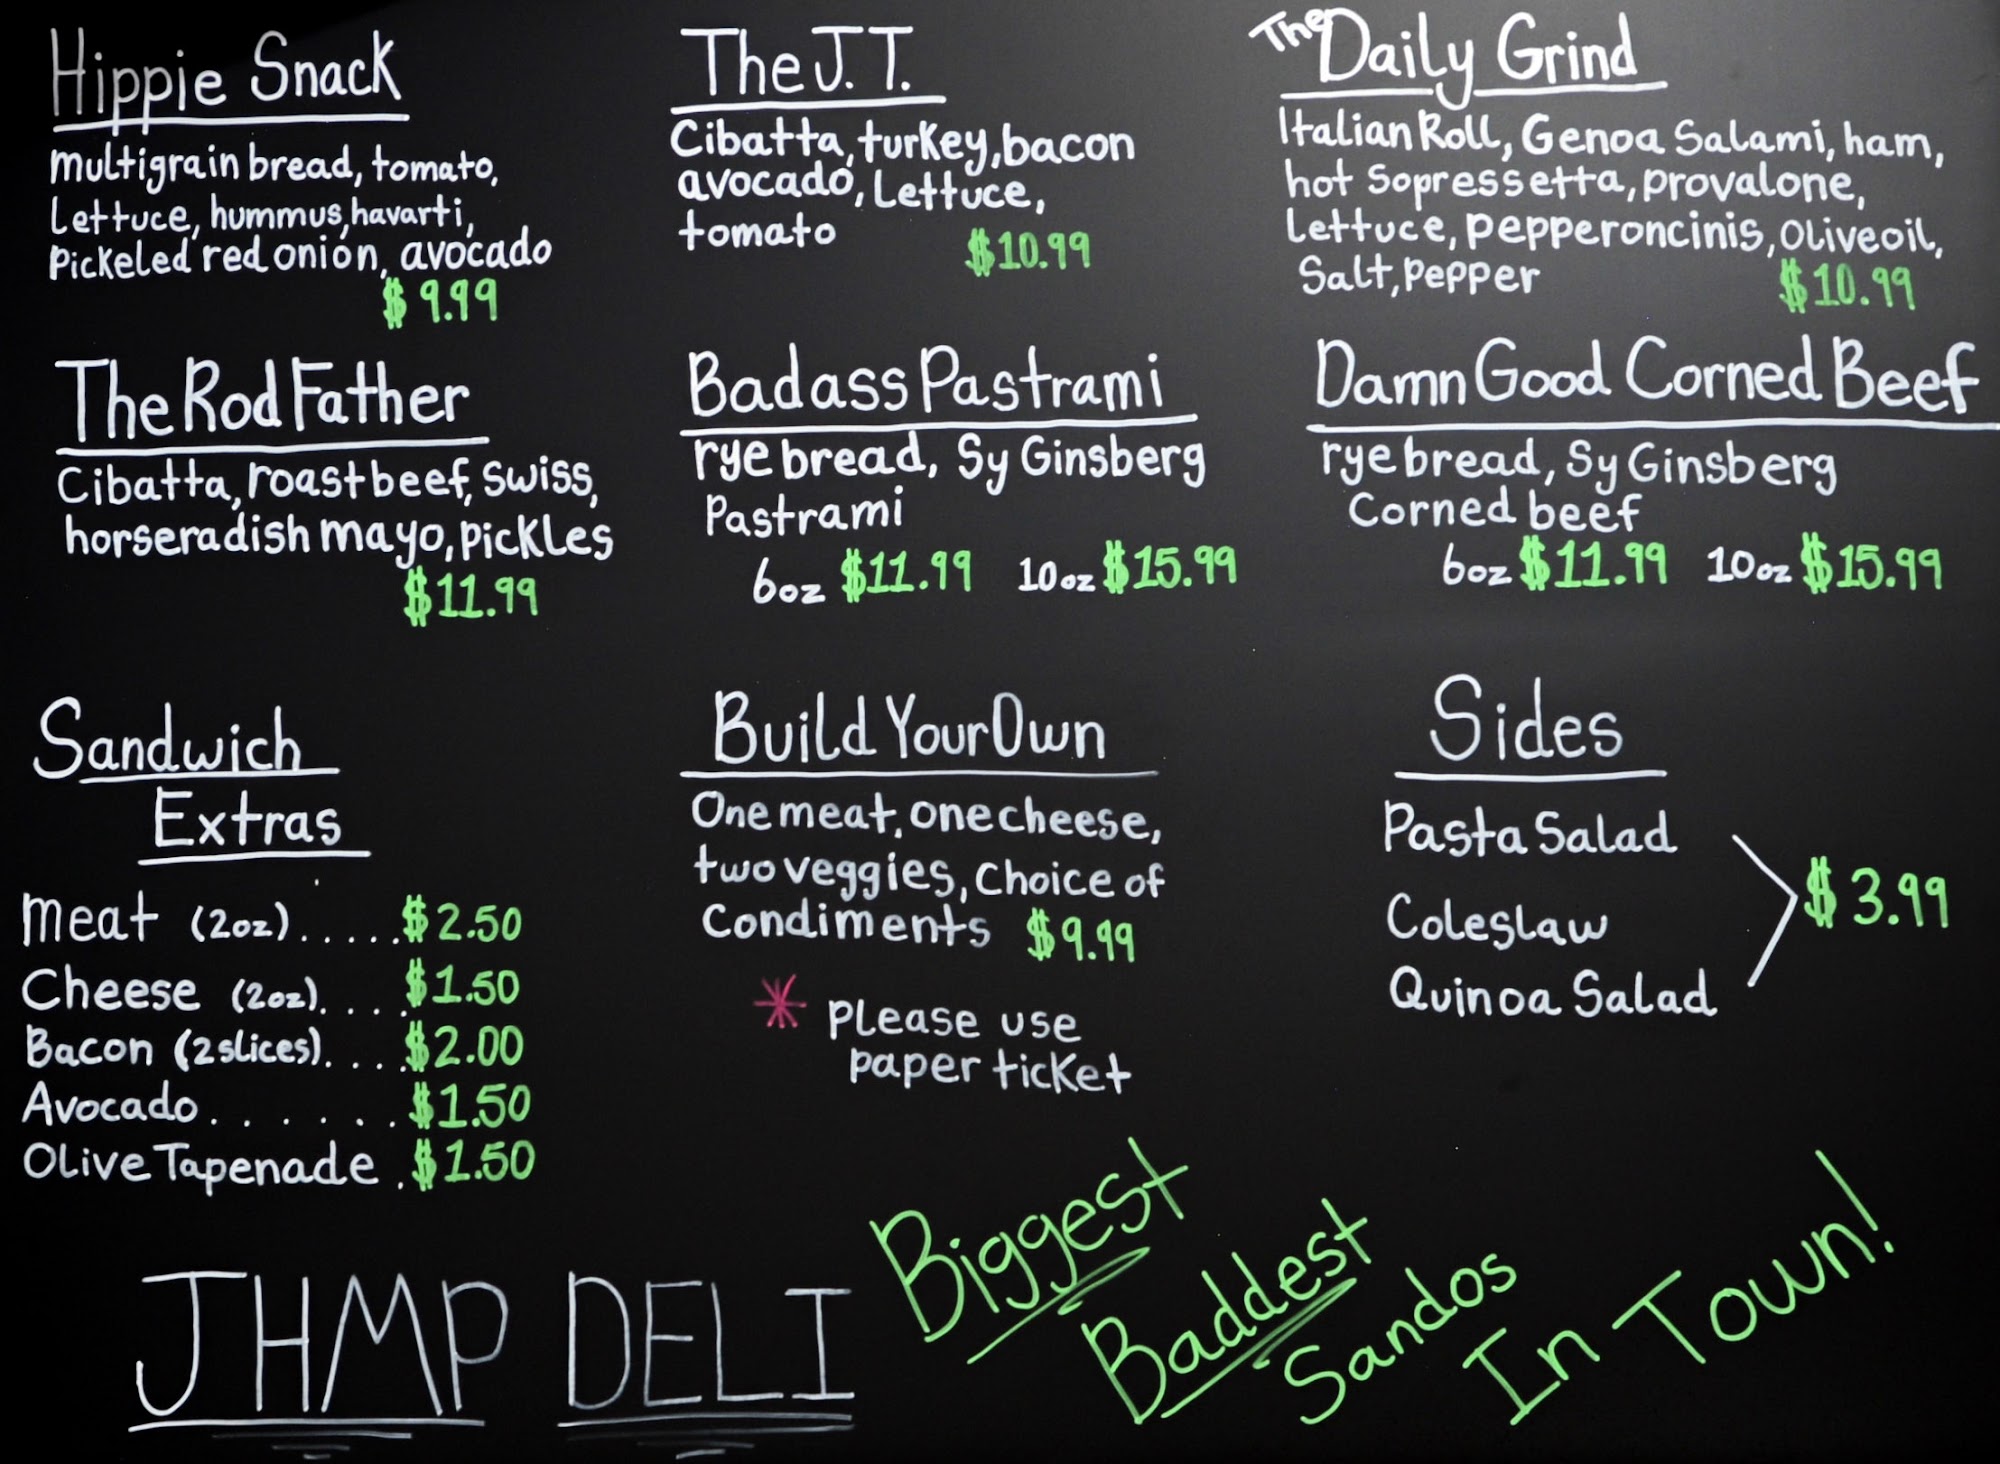 Hippie Snack
multigrain bread, tomato,
Lettuce, hummus, havarti,
Pickeled red onion, avocado
$9.99
The J.T.
Cibatta, turkey, bacon
avocado, Lettuce,
tomato
$10.99
The Daily Grind
Italian Roll, Genoa Salami, ham,
hot Sopressetta, provalone,
Lettuce, pepperoncinis, oliveoil,
Salt, pepper
$10.99
The Rod Father
Cibatta, roast beef, swiss,
horseradish mayo, pickles
$11.99
Badass Pastrami
rye bread, Sy Ginsberg
Pastrami
6oz $11.99 10oz $15.99
Damn Good Corned Beef
rye bread, Sy Ginsberg
Corned beef
6oz $11.99 10oz $15.99
Sandwich
Extras
Meat (2oz).....$2.50
Cheese (2oz)....$1.50
Bacon (2slices)....$2.00
Avocado.......$1.50
Olive Tapenade.$1.50
Build Your Own
One meat, one cheese,
two veggies, Choice of
Condiments $9.99
* Please use
paper ticket
Sides
Pasta Salad
Coleslaw
Quinoa Salad
$3.99
JHMP DELI
Biggest
Baddest
Sandos
In Town!